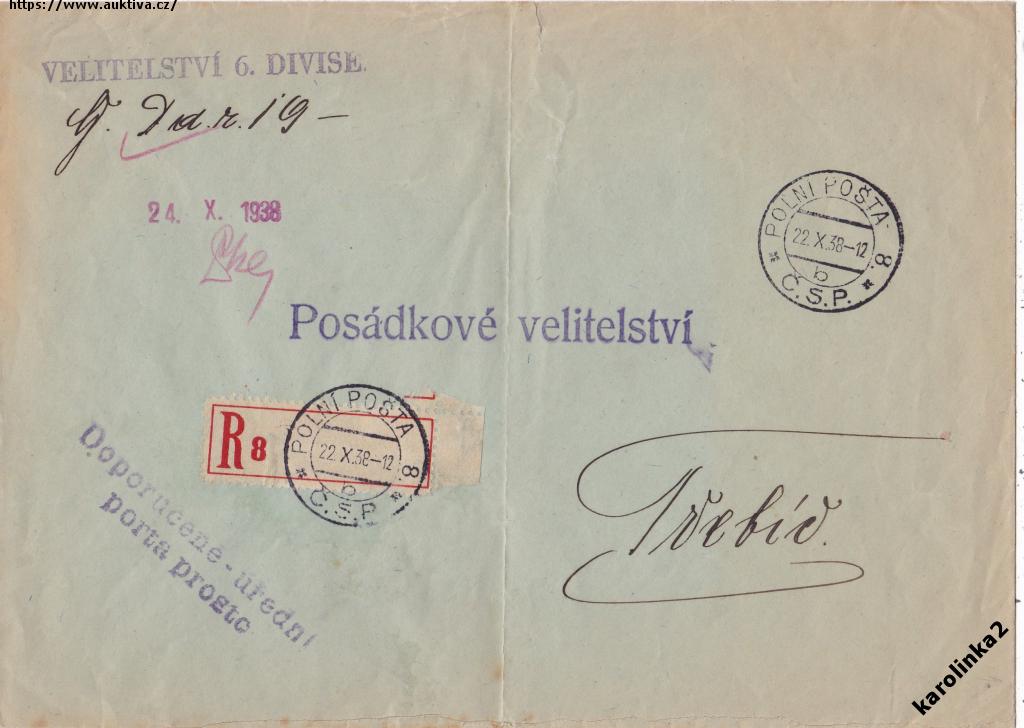 https://www.auktiva.cz/
VELITELSTVÍ 6. DIVISE.
19-
24. X. 1938
POLNÍ POŠTA 8.
22.X.38-12
b
* Č.S.P. *
Posádkové velitelství
R 8
POLNÍ POŠTA 8.
22.X.38-12
b
* Č.S.P. *
Doporučeně-úřední
porta prosto
Třebíč.
karolinka2